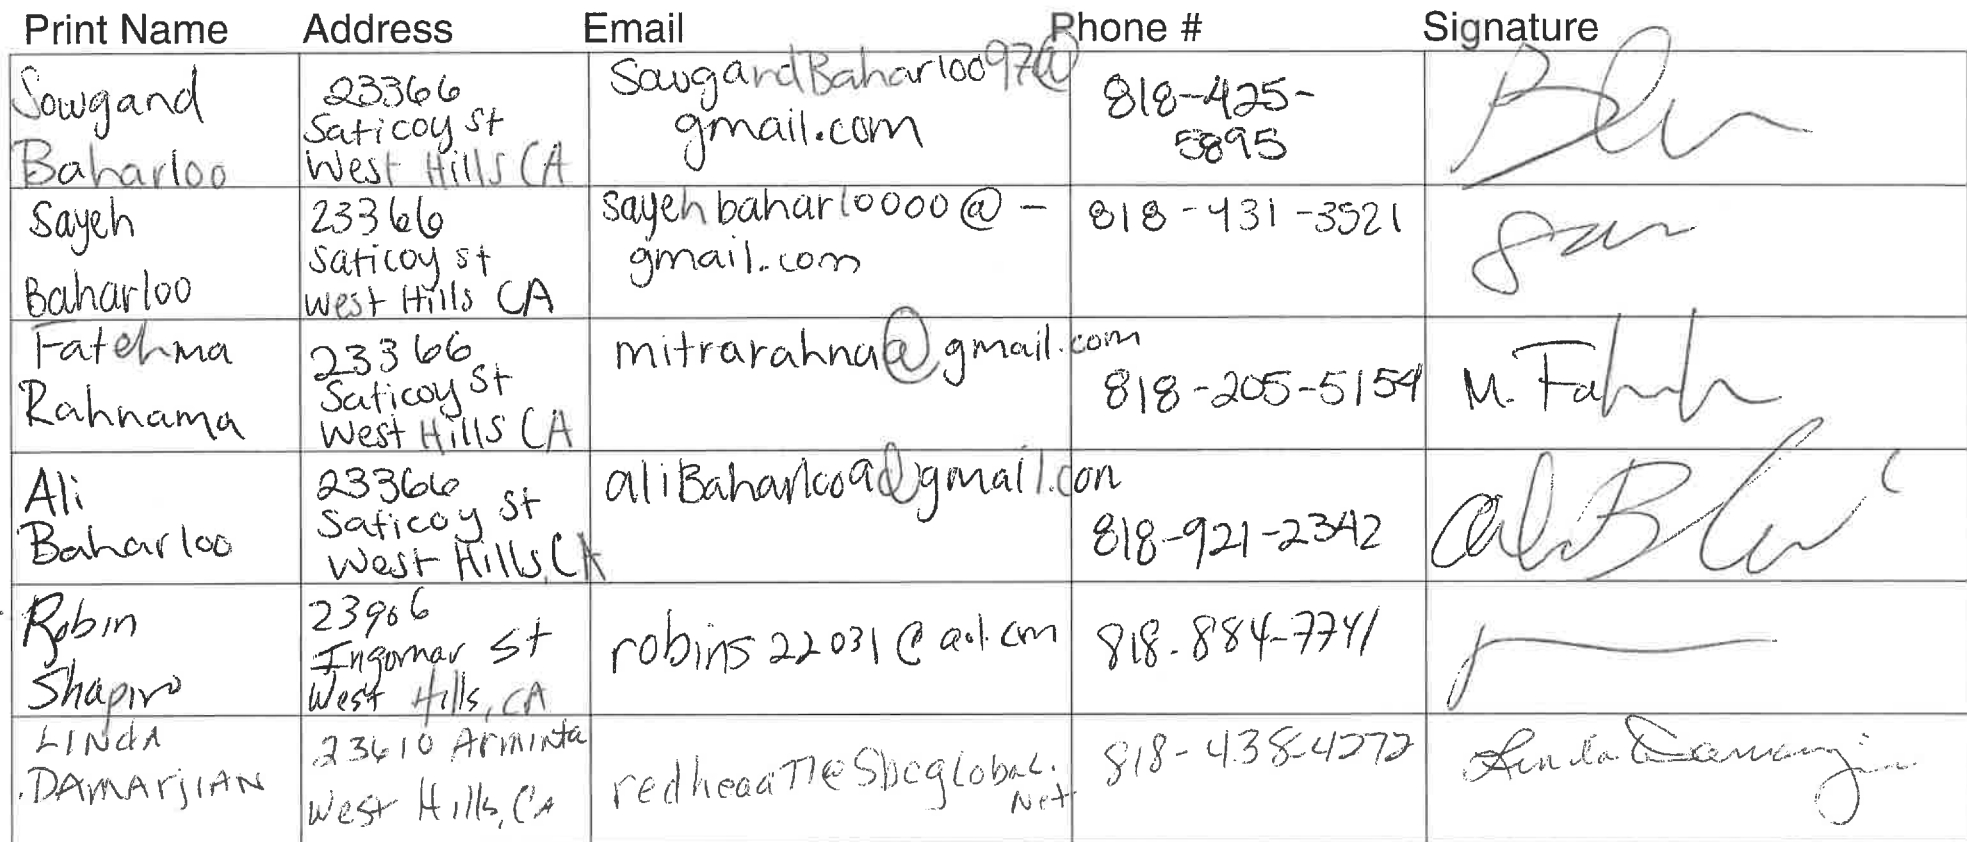 Print Name Address Email Phone # Signature
Sowgand
Baharloo
23366
Saticoy St
West Hills CA
SowgandBaharloo97@
gmail.com
818-425-
5895
Sayeh
Baharloo
23366
Saticoy st
West Hills CA
sayehbaharloo00@-
gmail.com
818-431-3521
Fatehma
Rahnama
23366
Saticoy St
West Hills CA
mitrarahna@gmail.com
818-205-5154
M. Fa
Ali
Baharloo
23366
Saticoy St
West Hills, CA
818-921-2342
Robin
Shapiro
23906
Ingomar St
West Hills, CA
robins22031@aol.com
818-884-7741
LINdA
DAMArjIAN
23610 Arminta
West Hills, CA
818-438-4272
Linda Damarji